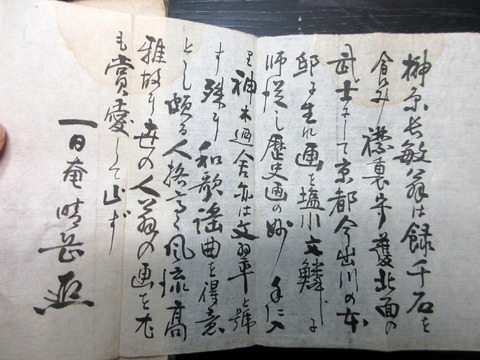 榊原長敏翁は録千石を
食み禁裏守護北面の
武士にして京都今出川の本
邸に生れ画を塩川文鱗に
師従し歴史画の妙手に入
り神木廼舎亦は文翠と號
す殊に和歌謡曲を得意
とし頗る人格高く風流高
雅故に世の人翁の画を尤
も賞愛して止ず
一日奄晴岳